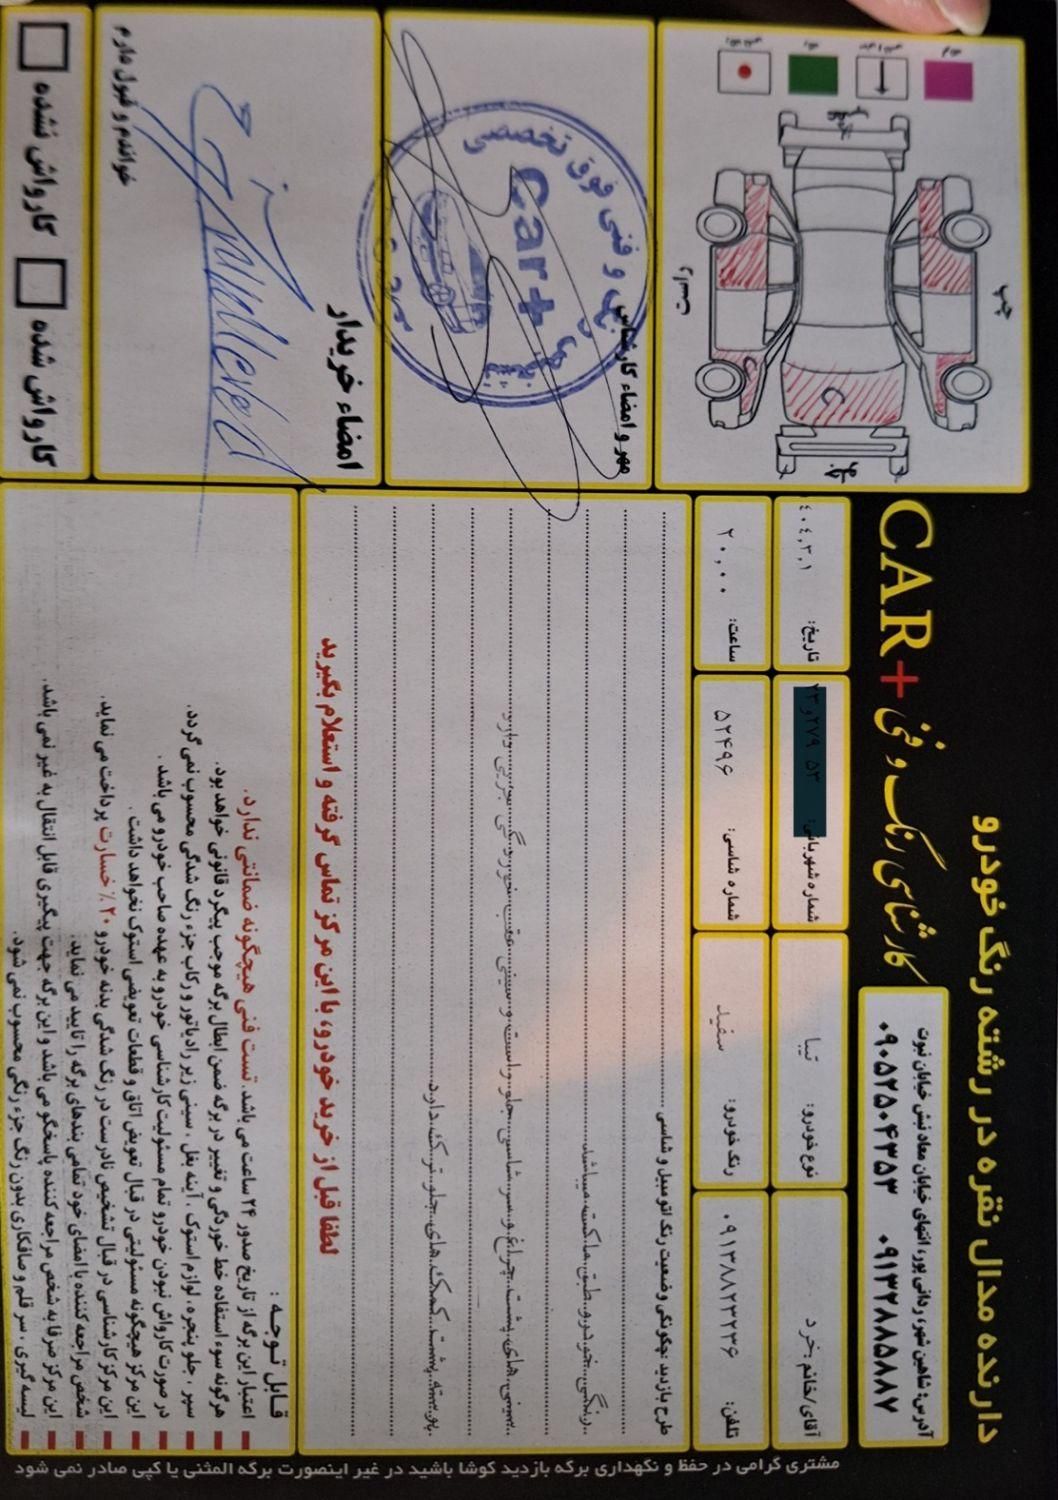 دارنده مدال نقره در رشته رنگ خودرو
CAR+ کارشناسی رنگ و فنی
آدرس: شاهین شهر، ردانی پور، انتهای خیابان معاد نبش خیابان نبوت
۰۹۰۵۲۵۰۴۳۵۳ ۰۹۱۳۲۸۸۵۸۸۷
آقای/خانم: خرد نوع خودرو: تیبا شماره شهربانی: ۵۳ ۲۷۹ و ۲۳ تاریخ: ۴۰۴،۳،۱
تلفن: ۰۹۱۳۸۸۲۳۲۳۶ رنگ خودرو: سفید شماره شاسی: ۵۲۴۹۶ ساعت: ۲۰،۰۰
طرح بازدید چگونگی وضعیت رنگ اتومبیل و شاسی
رنگی خودرو طبق ماکت میباشد
سینی های پشت چراغ و سر شاسی جلو راست و سینی عقب خوردگی جزیی دارد
پوسته پشت کمک های جلو ترک دارد
لطفا قبل از خرید خودرو، با این مرکز تماس گرفته و استعلام بگیرید
قابل توجه:
اعتبار این برگه از تاریخ صدور ۲۴ ساعت می باشد. تست فنی هیچگونه ضمانتی ندارد.
هرگونه سوء استفاده خط خوردگی و تغییر در برگه ضمن ابطال برگه موجب پیگرد قانونی خواهد بود.
سپر، جلو پنجره، لوازم استوک، آینه بغل، سینی زیر رادیاتور و رکاب جزء رنگ شدگی محسوب نمی گردد.
در صورت کارواش نبودن خودرو تمام مسئولیت کارشناسی خودرو به عهده صاحب خودرو می باشد.
این مرکز هیچگونه مسئولیتی در قبال تعویض اتاق و قطعات تعویضی استوک نخواهد داشت.
این مرکز کارشناسی در قبال تشخیص نادرست در رنگ شدگی بدنه خودرو ۲۰٪ خسارت پرداخت می نماید.
شخص مراجعه کننده با امضای خود تمامی بندهای برگه را تایید می نماید.
این مرکز صرفا به شخص مراجعه کننده پاسخگو می باشد و این برگه جهت پیگیری قابل انتقال به غیر نمی باشد.
لیسه گیری، سر قلم و صافکاری بدون رنگ جزء رنگی محسوب نمی شود.
چپ
راست
جلو
مهر و امضاء کارشناس
فنی فوق تخصصی
Car+
امضاء خریدار
خواندم و قبول دارم
کارواش شده
کارواش نشده
مشتری گرامی در حفظ و نگهداری برگه بازدید کوشا باشید در غیر اینصورت برگه المثنی یا کپی صادر نمی شود